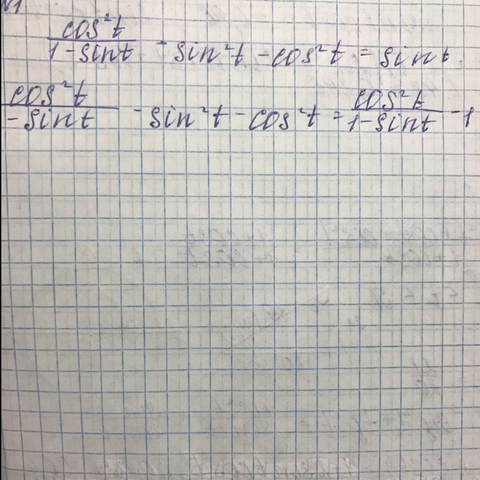 №1
cos²t / 1-sint - sin²t - cos²t = sint.
cos²t / -sint - sin²t - cos²t = cos²t / 1-sint - 1